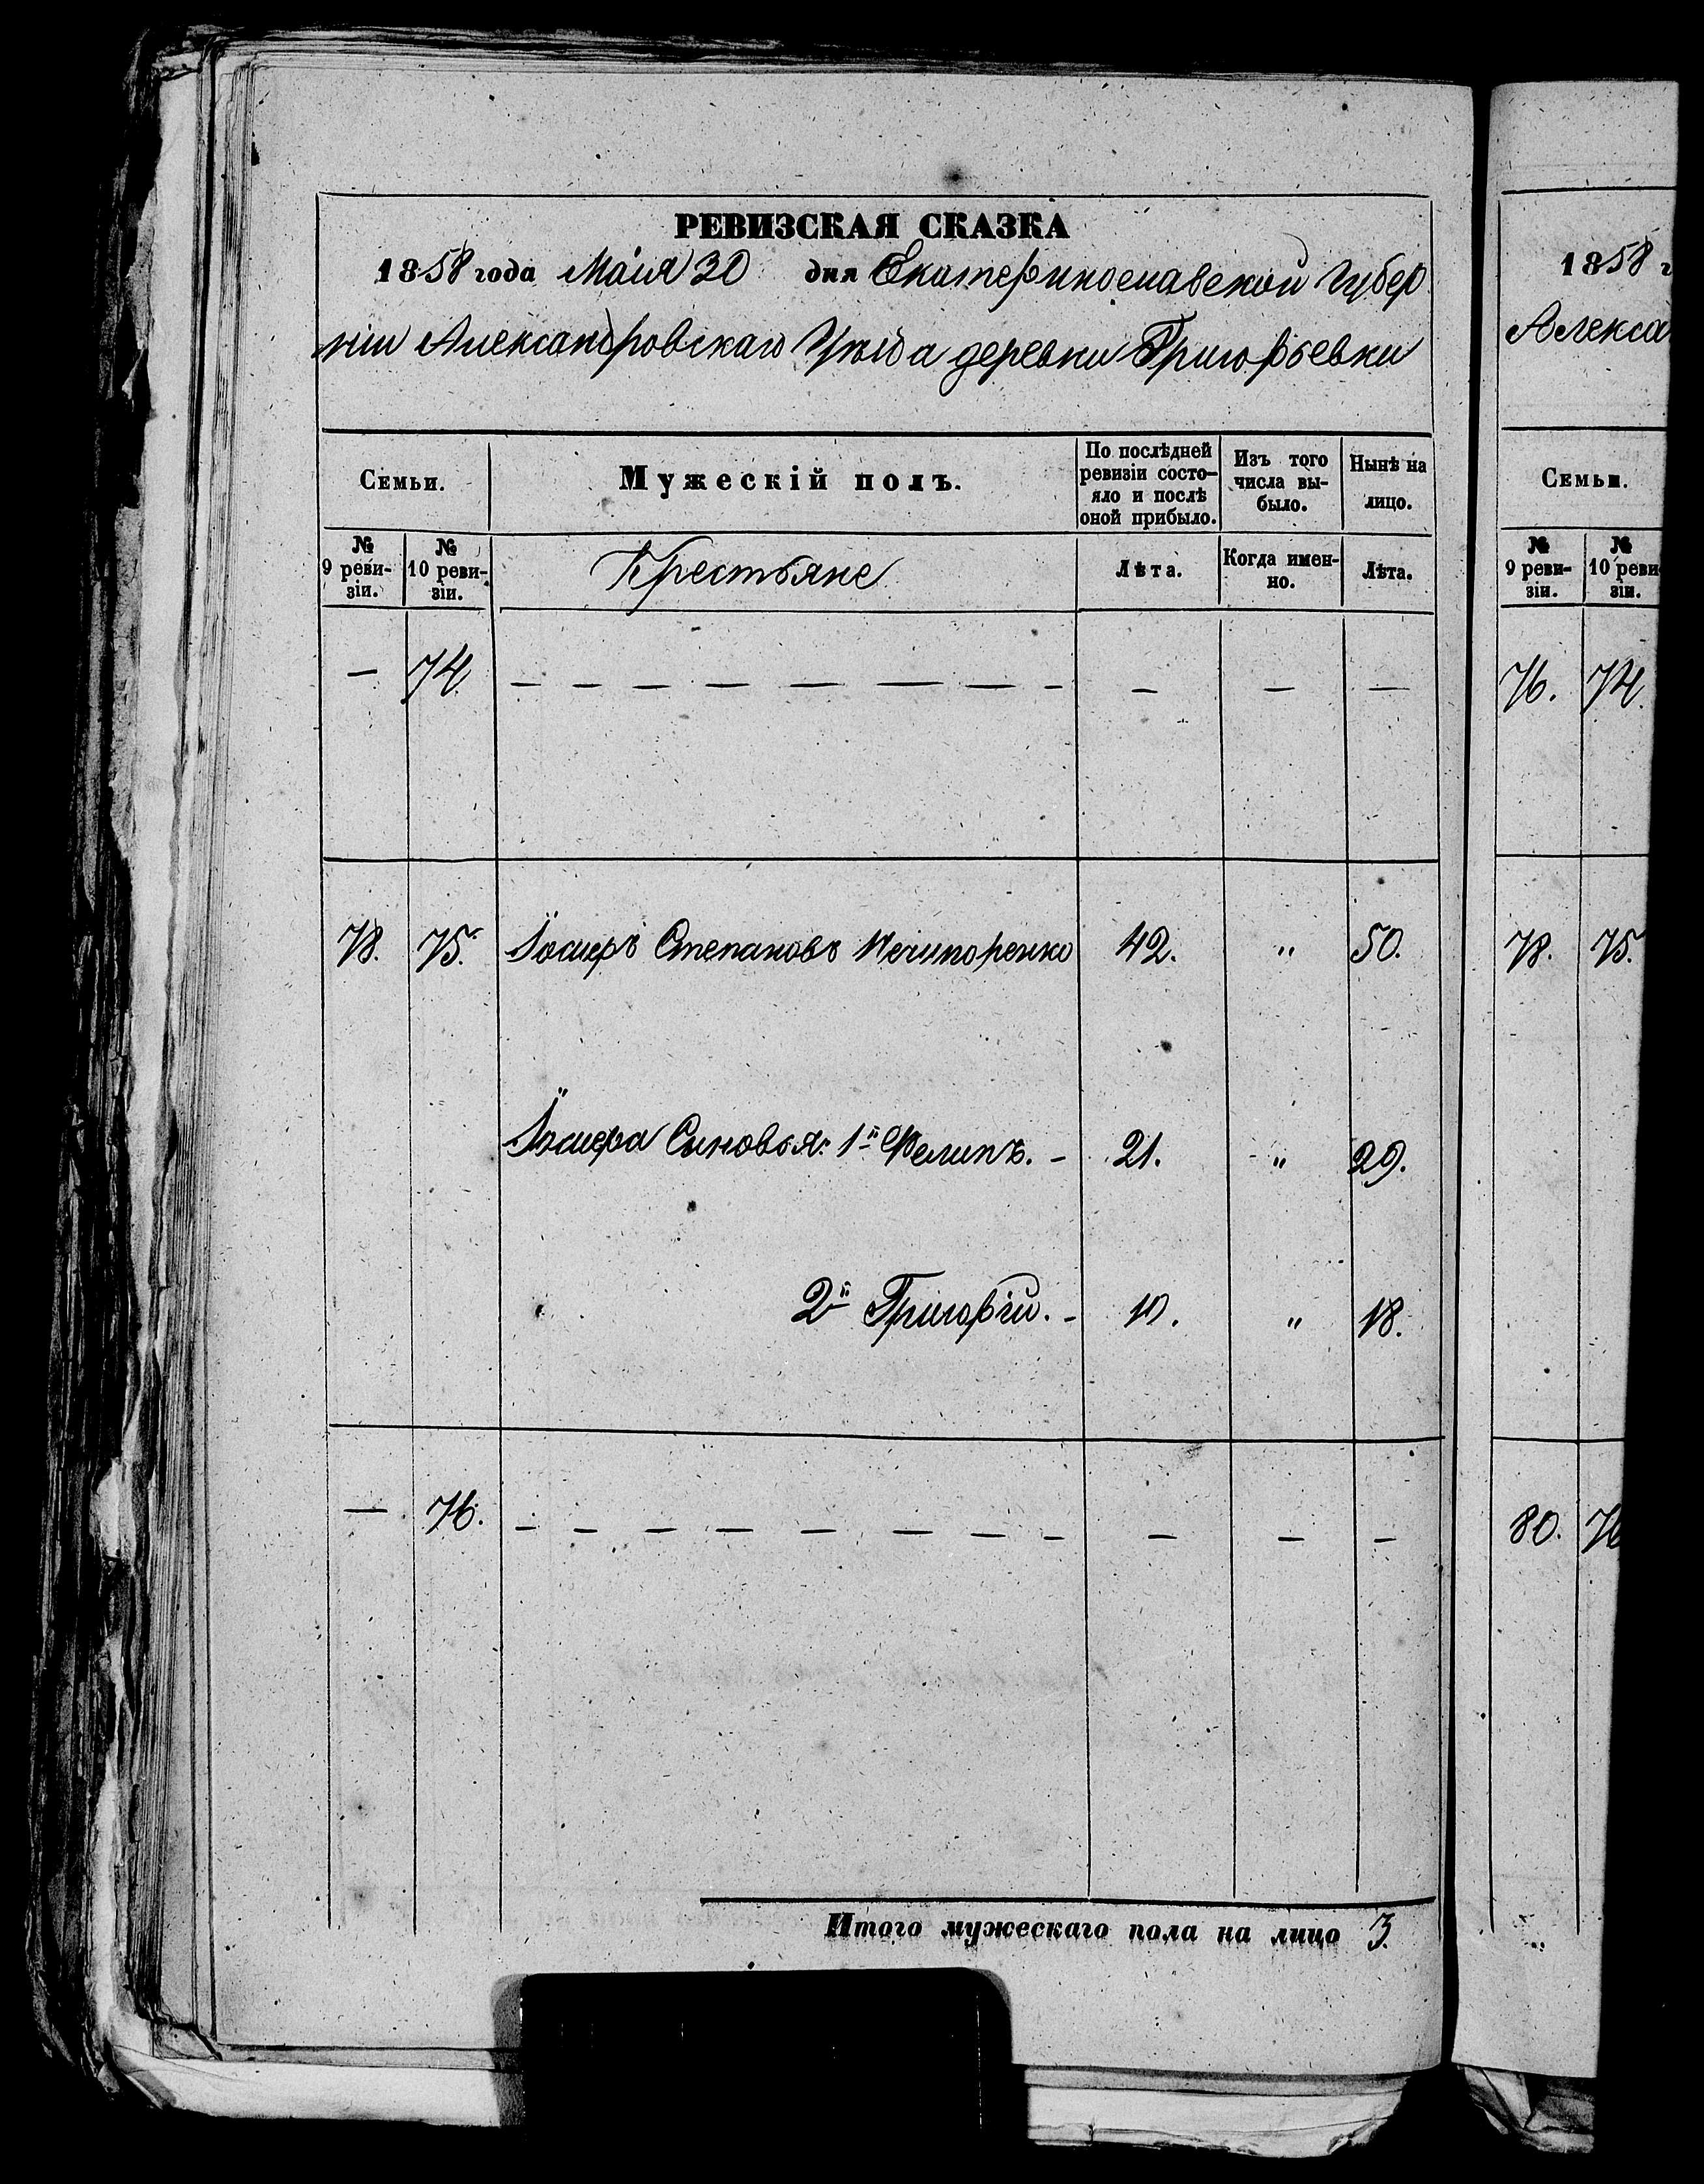 РЕВИЗСКАЯ СКАЗКА
1858 года Маія 30 дня Екатеринославской Губер
ніи Александровскаго Уѣзда деревни Григорьевки
Семьи. Мужескій полъ. По послѣдней ревизіи состо- яло и послѣ оной прибыло. Изъ того числа вы- было. Нынѣ на лицо.
№ 9 реви- зіи. № 10 реви- зіи. Крестьяне Лѣта. Когда имен- но. Лѣта.
— 74. — — — — — — — — — — —
78. 75. Степановъ Нечипоренко 42. " 50.
Сыновья: 1й Фелипъ. - 21. " 29.
2й Григорій. - 10. " 18.
— 76. — — — — — — — — — — —
Итого мужескаго пола на лицо 3.
1858 г
Алекса
Семьи.
№ 9 реви- зіи. № 10 реви зіи.
76. 74.
78. 75.
80. 76